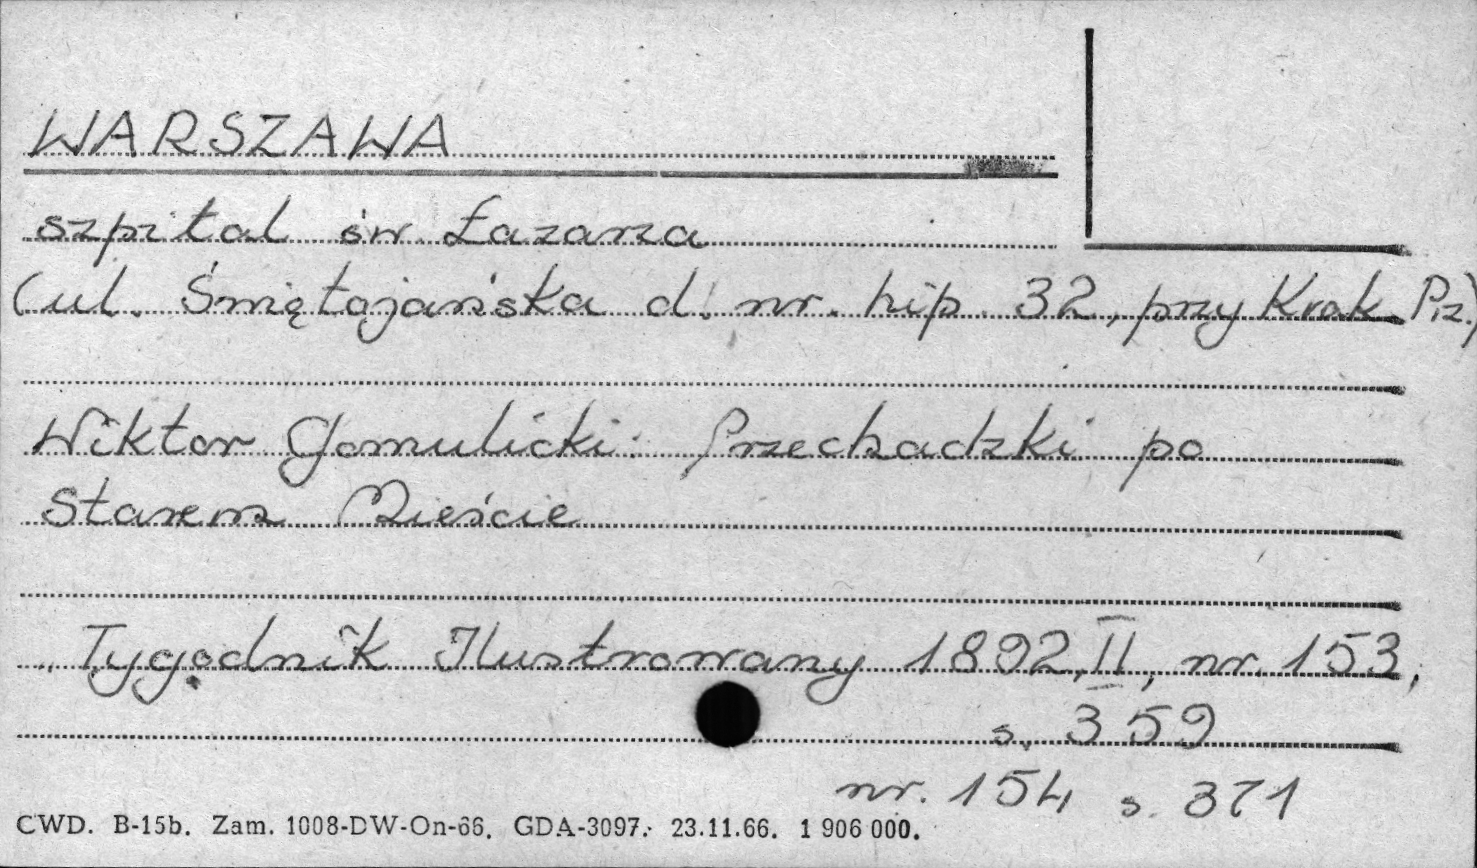 WARSZAWA
szpital św. Łazarza
(ul. Świętojańska d. nr. hip. 32, przy Krak. Prz.)
Wiktor Gomulicki: Przechadzki po
Starem Mieście
"Tygodnik Ilustrowany 1892, II, nr. 153,
s. 359
nr. 154 s. 371
CWD. B-15b. Zam. 1008-DW-On-66. GDA-3097. 23.11.66. 1 906 000.